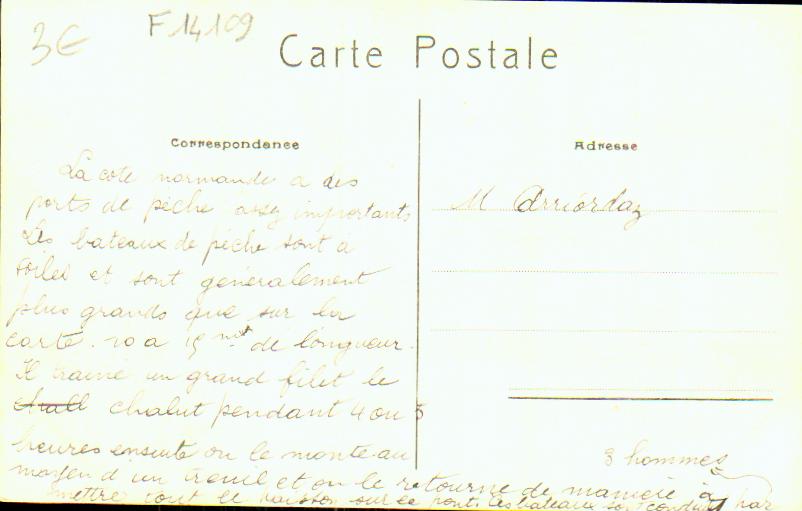 3€
F14109
Carte Postale
Correspondance
Adresse
La cote normande a des
ports de pêche assez importants
Les bateaux de pêche sont à
voiles et sont généralement
plus grands que sur la
carte. 10 a 15 mt de longueur.
Il traine un grand filet le
chalut pendant 4 ou 5
heures ensuite on le monte au
moyen d'un treuil et on le retourne de manière à
mettre tout le poisson sur le pont. Les bateaux sont conduits par
3 hommes
M Arriordaz